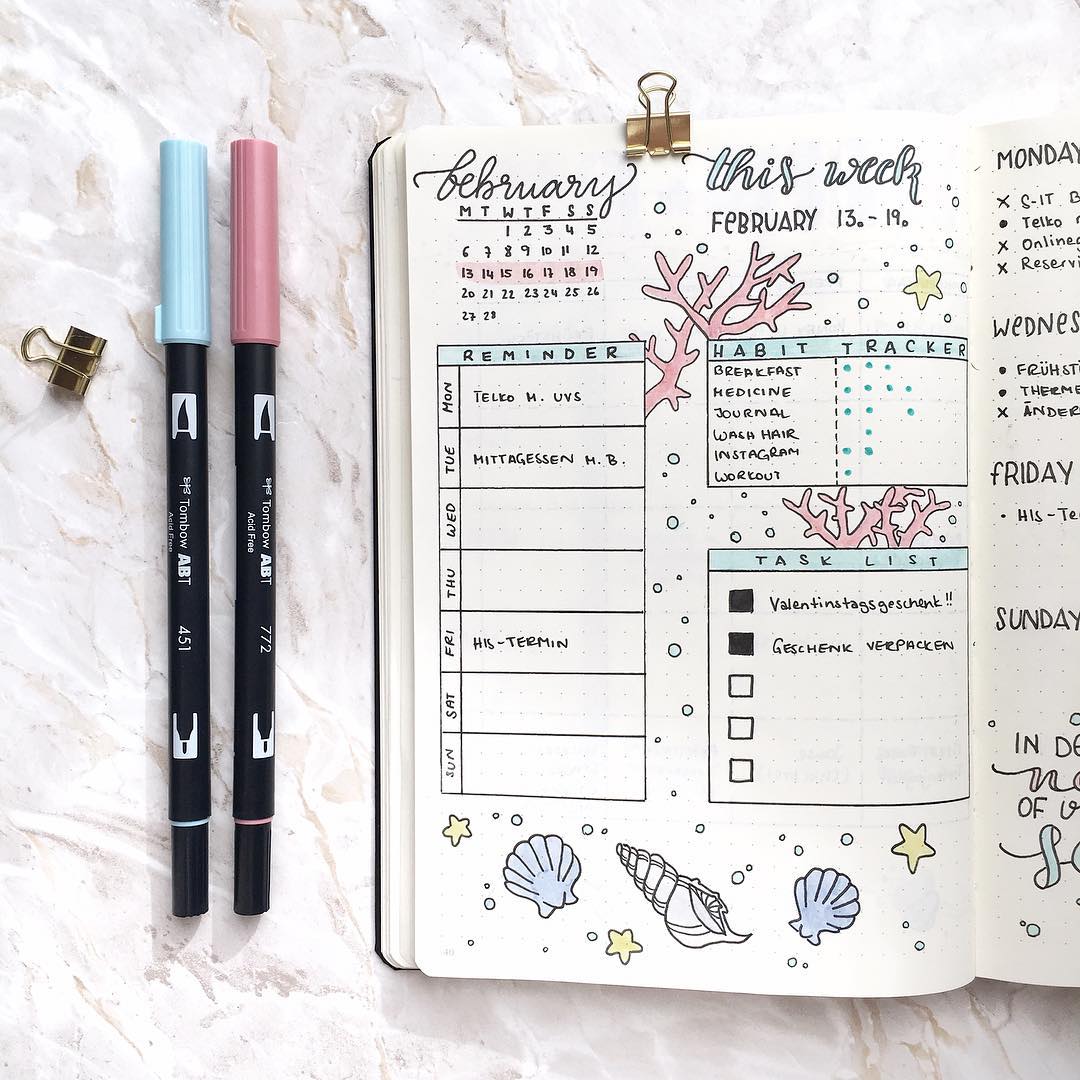 february
M T W T F S S
1 2 3 4 5
6 7 8 9 10 11 12
13 14 15 16 17 18 19
20 21 22 23 24 25 26
27 28
REMINDER
MON TELKO M. UVS
TUE MITTAGESSEN M. B.
WED
THU
FRI HIS-TERMIN
SAT
SUN
this week
FEBRUARY 13.-19.
HABIT TRACKER
BREAKFAST
MEDICINE
JOURNAL
WASH HAIR
INSTAGRAM
WORKOUT
TASK LIST
Valentinstagsgeschenk!!
GESCHENK VERPACKEN
40
MONDAY
x S-IT B
• Telko
x Onlineg
x Reservi
WEDNES
• FRÜHST
• THERME
x ÄNDER
FRIDAY
• HIS-Te
SUNDAY
IN DE
OF
Tombow ABT
Acid Free
451
Tombow ABT
Acid Free
772